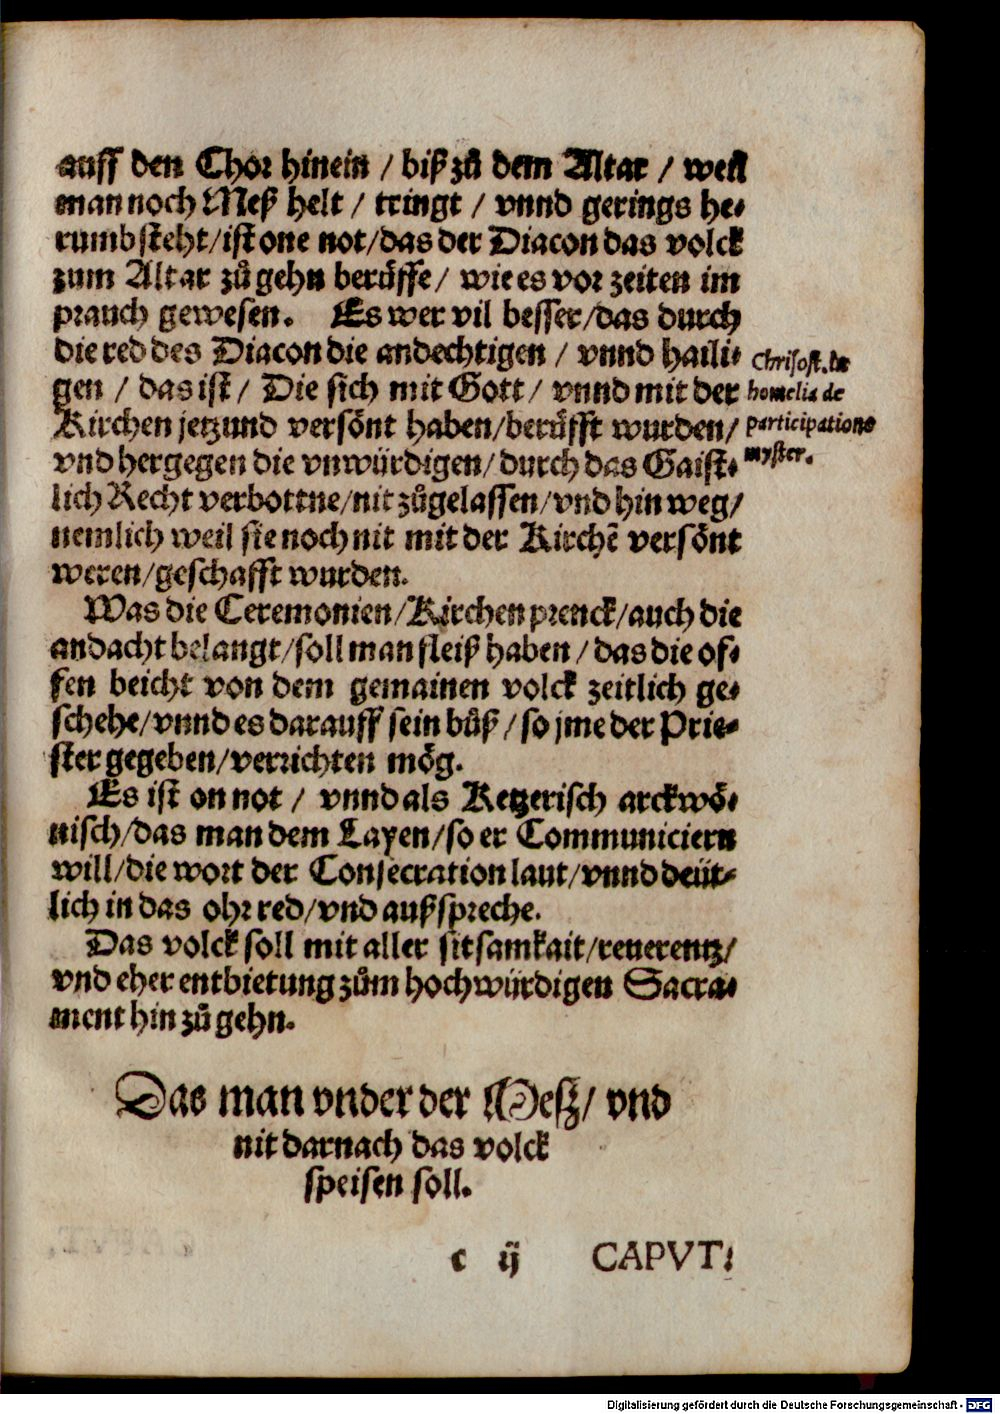 auff den Chor hinein / biß zů dem Altar / weil
man noch Meß helt / tringt / vnnd gerings he⸗
rumb steht/ist one not/das der Diacon das volck
zum Altar zů gehn berůffe/ wie es vor zeiten im
prauch gewesen. Es wer vil besser/das durch
die red des Diacon die andechtigen / vnnd haili⸗
gen / das ist / Die sich mit Gott/ vnnd mit der
Kirchen jetzund versönt haben/berůfft wurden/
vnd hergegen die vnwürdigen/durch das Gaist⸗
lich Recht verbottne/nit zůgelassen/vnd hin weg/
nemlich weil sie noch nit mit der Kirchē versönt
weren/geschafft wurden.
Chrisost. in
homelia de
participatione
myster.
Was die Ceremonien/Kirchen prenck/auch die
andacht belangt/soll man fleiß haben / das die of⸗
fen beicht von dem gemainen volck zeitlich ge⸗
schehe/vnnd es darauff sein bůß / so jme der Prie⸗
ster gegeben/verrichten mög.
Es ist on not / vnnd als Ketzerisch arckwö⸗
nisch/das man dem Layen/so er Communiciern
will/die wort der Consecration laut/vnnd deüt⸗
lich in das ohr red/vnd außspreche.
Das volck soll mit aller sitsamkait/reuerentz/
vnd eher entbietung zům hochwürdigen Sacra⸗
ment hin zů gehn.
Das man vnder der Mesz/ vnd
nit darnach das volck
speisen soll.
c ij CAPVT.
Digitalisierung gefördert durch die Deutsche Forschungsgemeinschaft - DFG